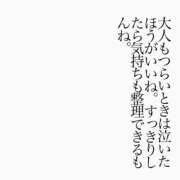 大人もつらいときは泣いた
ほうがいいね。すっきりし
たら気持ちも整理できるも
んね。